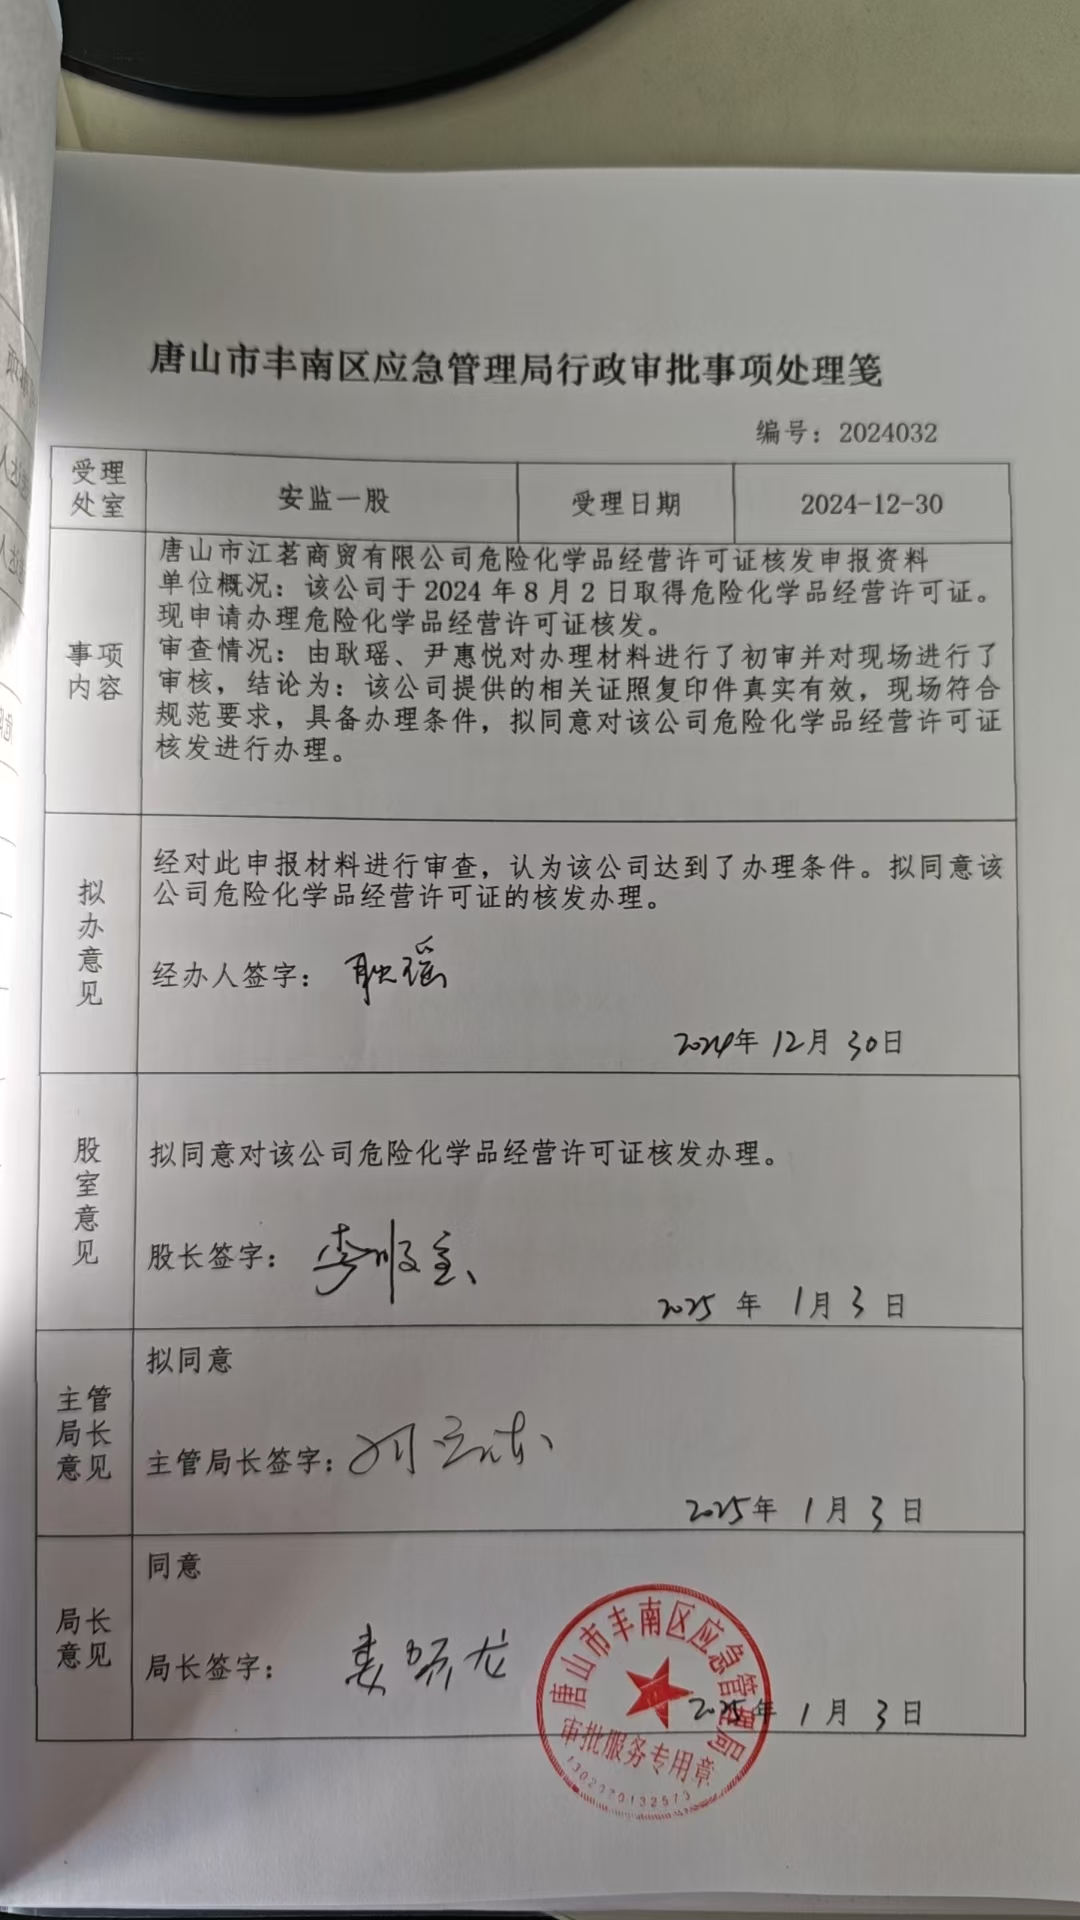 唐山市丰南区应急管理局行政审批事项处理笺
编号：2024032
受理处室
安监一股
受理日期
2024-12-30
事项内容
唐山市江茗商贸有限公司危险化学品经营许可证核发申报资料
单位概况：该公司于 2024 年 8 月 2 日取得危险化学品经营许可证。
现申请办理危险化学品经营许可证核发。
审查情况：由耿瑶、尹惠悦对办理材料进行了初审并对现场进行了
审核，结论为：该公司提供的相关证照复印件真实有效，现场符合
规范要求，具备办理条件，拟同意对该公司危险化学品经营许可证
核发进行办理。
拟办意见
经对此申报材料进行审查，认为该公司达到了办理条件。拟同意该
公司危险化学品经营许可证的核发办理。
经办人签字：耿瑶
2024年 12月 30日
股室意见
拟同意对该公司危险化学品经营许可证核发办理。
股长签字：李顺
2025 年 1月 3 日
主管局长意见
拟同意
主管局长签字：
2025年 1月 3日
局长意见
同意
局长签字：
2025年 1月 3日
唐山市丰南区应急管理局
审批服务专用章